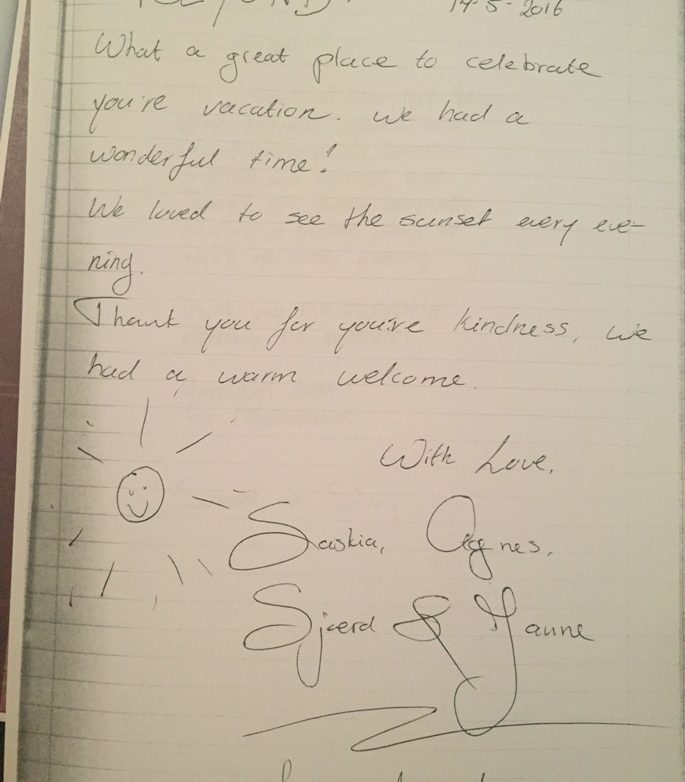 14-5-2016
What a great place to celebrate
you're vacation. we had a
wonderful time!
We loved to see the sunset every eve-
ning.
Thank you for you're kindness, we
had a warm welcome.
With Love,
Saskia, Agnes,
Sjoerd & Yanne